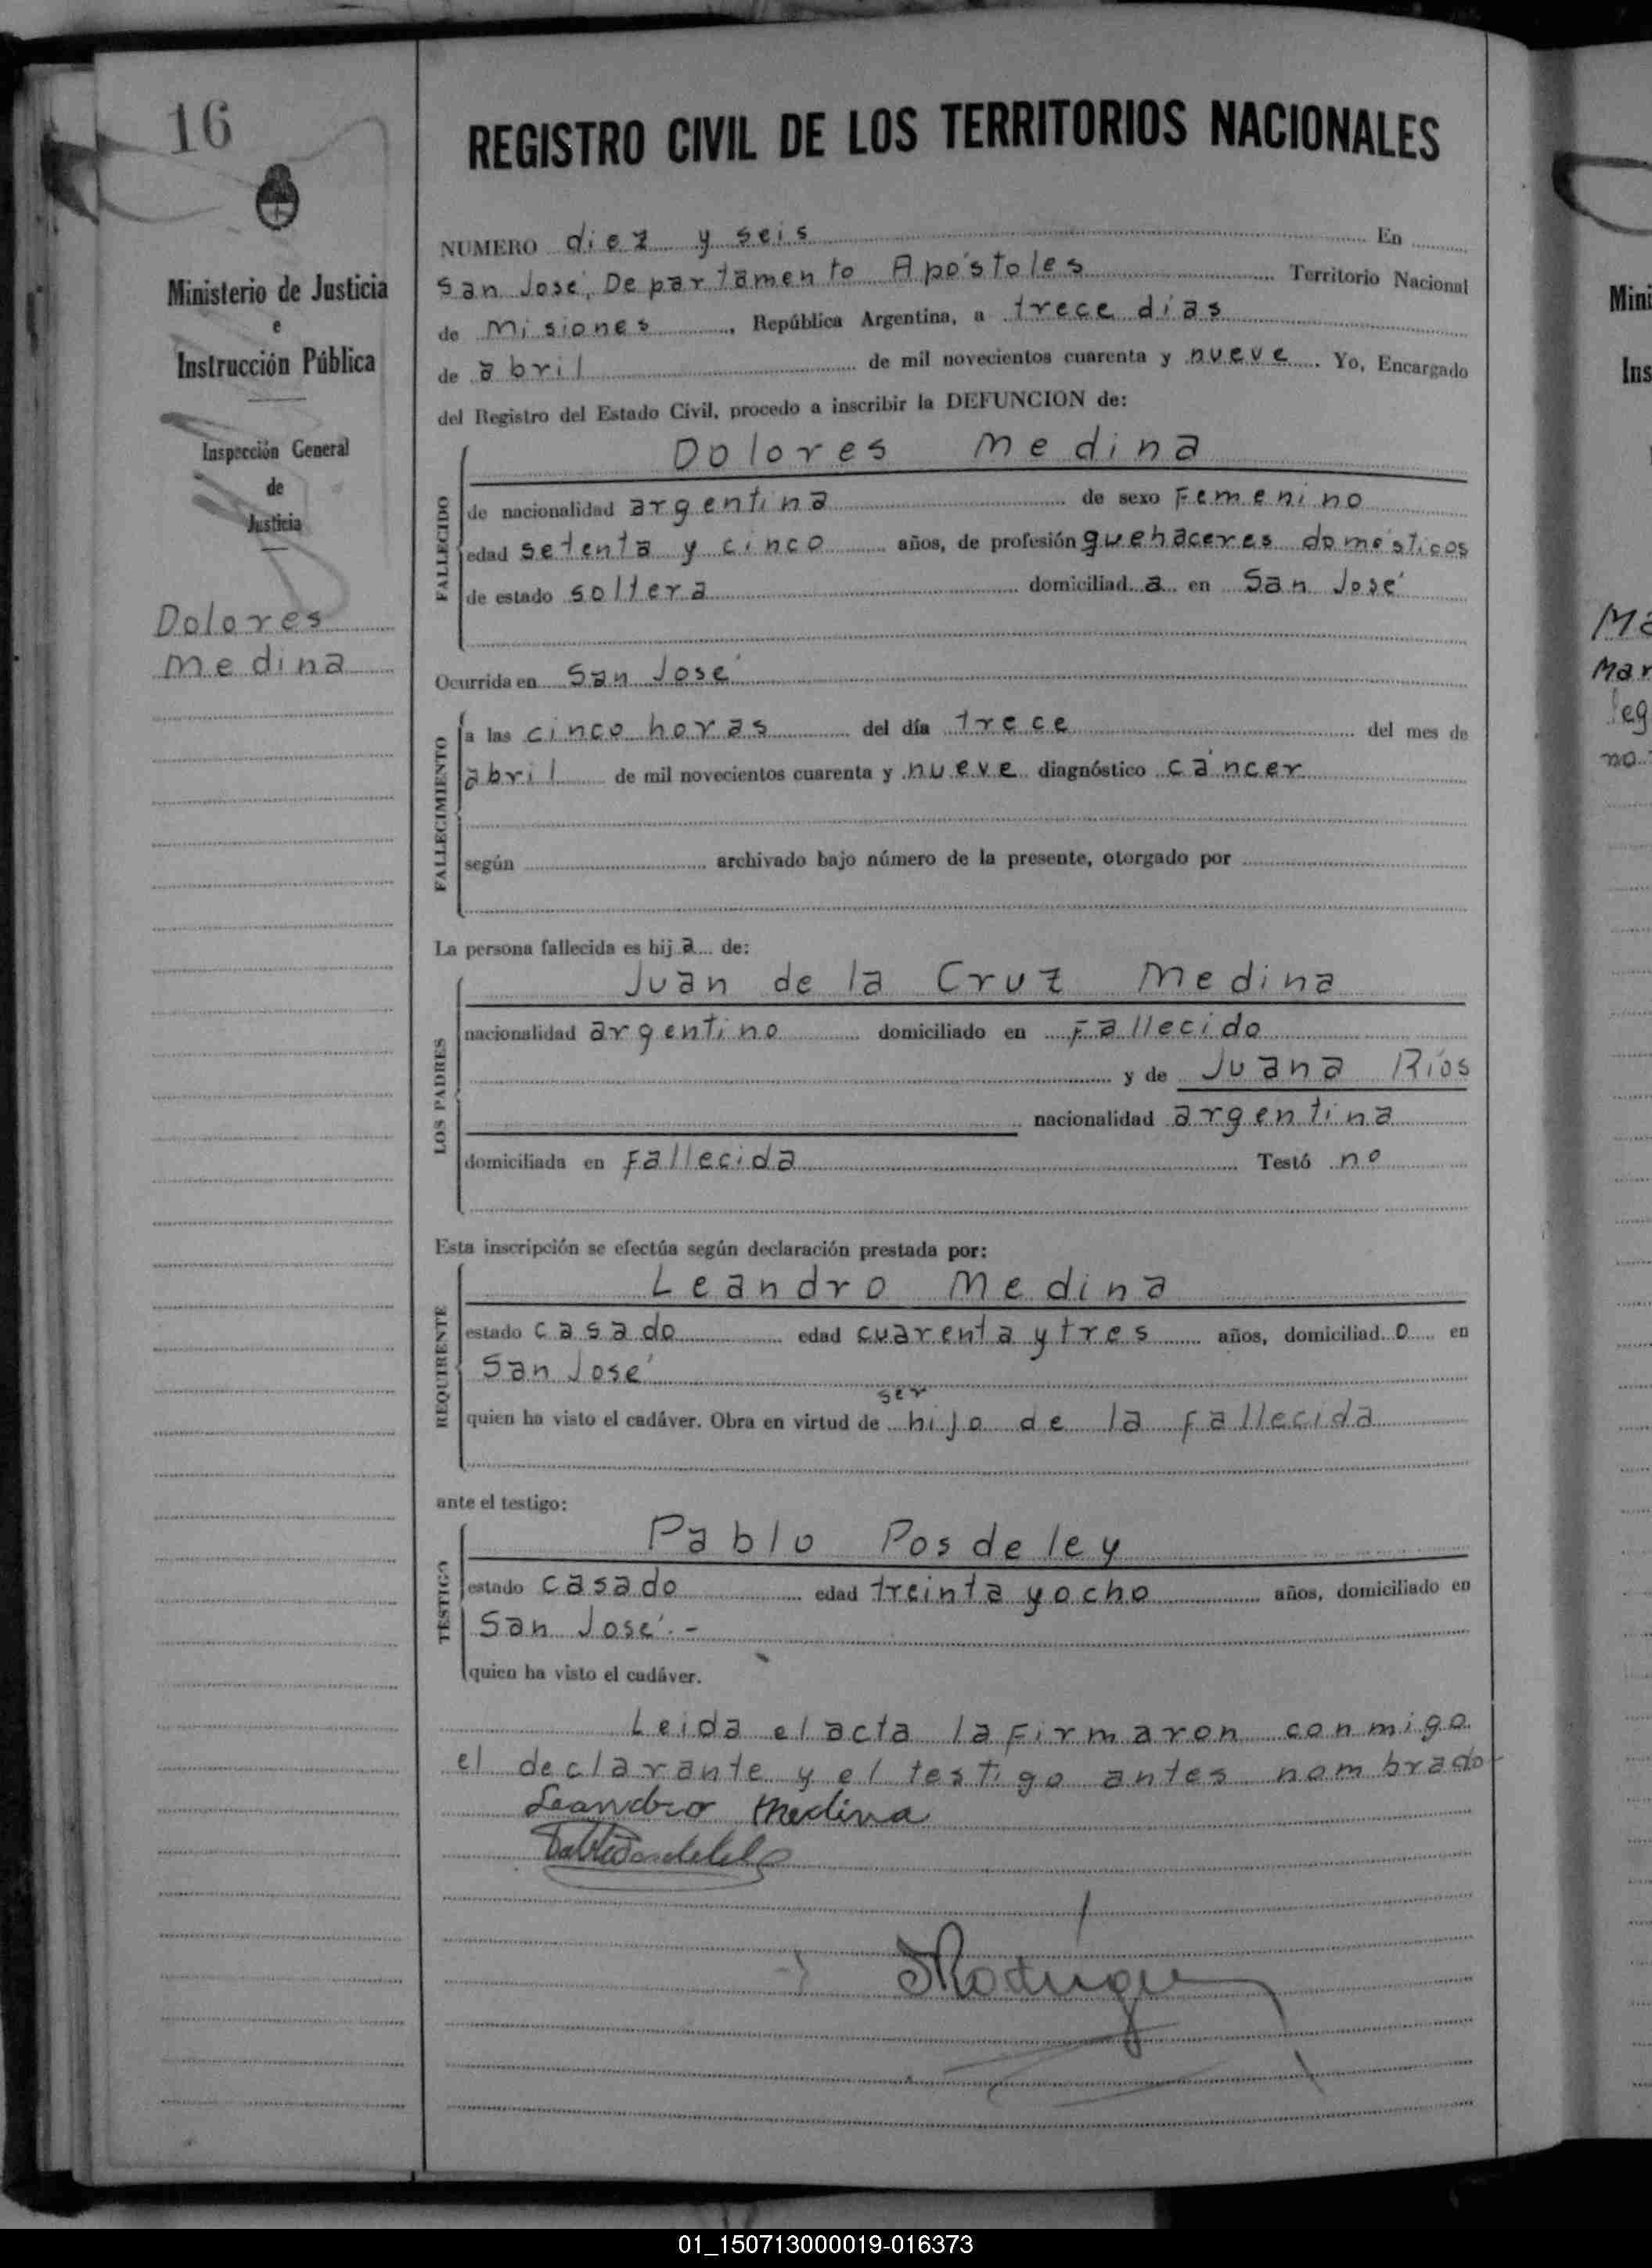 16
Ministerio de Justicia
e
Instrucción Pública
Inspección General
de
Justicia
Dolores
Medina
REGISTRO CIVIL DE LOS TERRITORIOS NACIONALES
NUMERO diez y seis En
San José, Departamento Apóstoles Territorio Nacional
de Misiones, República Argentina, a trece días
de abril de mil novecientos cuarenta y nueve. Yo, Encargado
del Registro del Estado Civil, procedo a inscribir la DEFUNCION de:
FALLECIDO
Dolores Medina
de nacionalidad argentina de sexo Femenino
edad setenta y cinco años, de profesión quehaceres domésticos
de estado soltera domiciliad a en San José
Ocurrida en San José
FALLECIMIENTO
a las cinco horas del día trece del mes de
abril de mil novecientos cuarenta y nueve diagnóstico cáncer
según archivado bajo número de la presente, otorgado por
La persona fallecida es hij a de:
LOS PADRES
Juan de la Cruz Medina
nacionalidad argentino domiciliado en Fallecido
y de Juana Ríos
nacionalidad argentina
domiciliada en Fallecida Testó no
Esta inscripción se efectúa según declaración prestada por:
REQUIRENTE
Leandro Medina
estado casado edad cuarenta y tres años, domiciliad o en
San José
ser
quien ha visto el cadáver. Obra en virtud de hijo de la Fallecida
ante el testigo:
TESTIGO
Pablo Posdeley
estado casado edad treinta y ocho años, domiciliado en
San José.-
quien ha visto el cadáver.
Leida el acta la Firmaron conmigo
el declarante y el testigo antes nombrado-
Leandro Medina
Mini
Ins
Mar
no
01_150713000019-016373